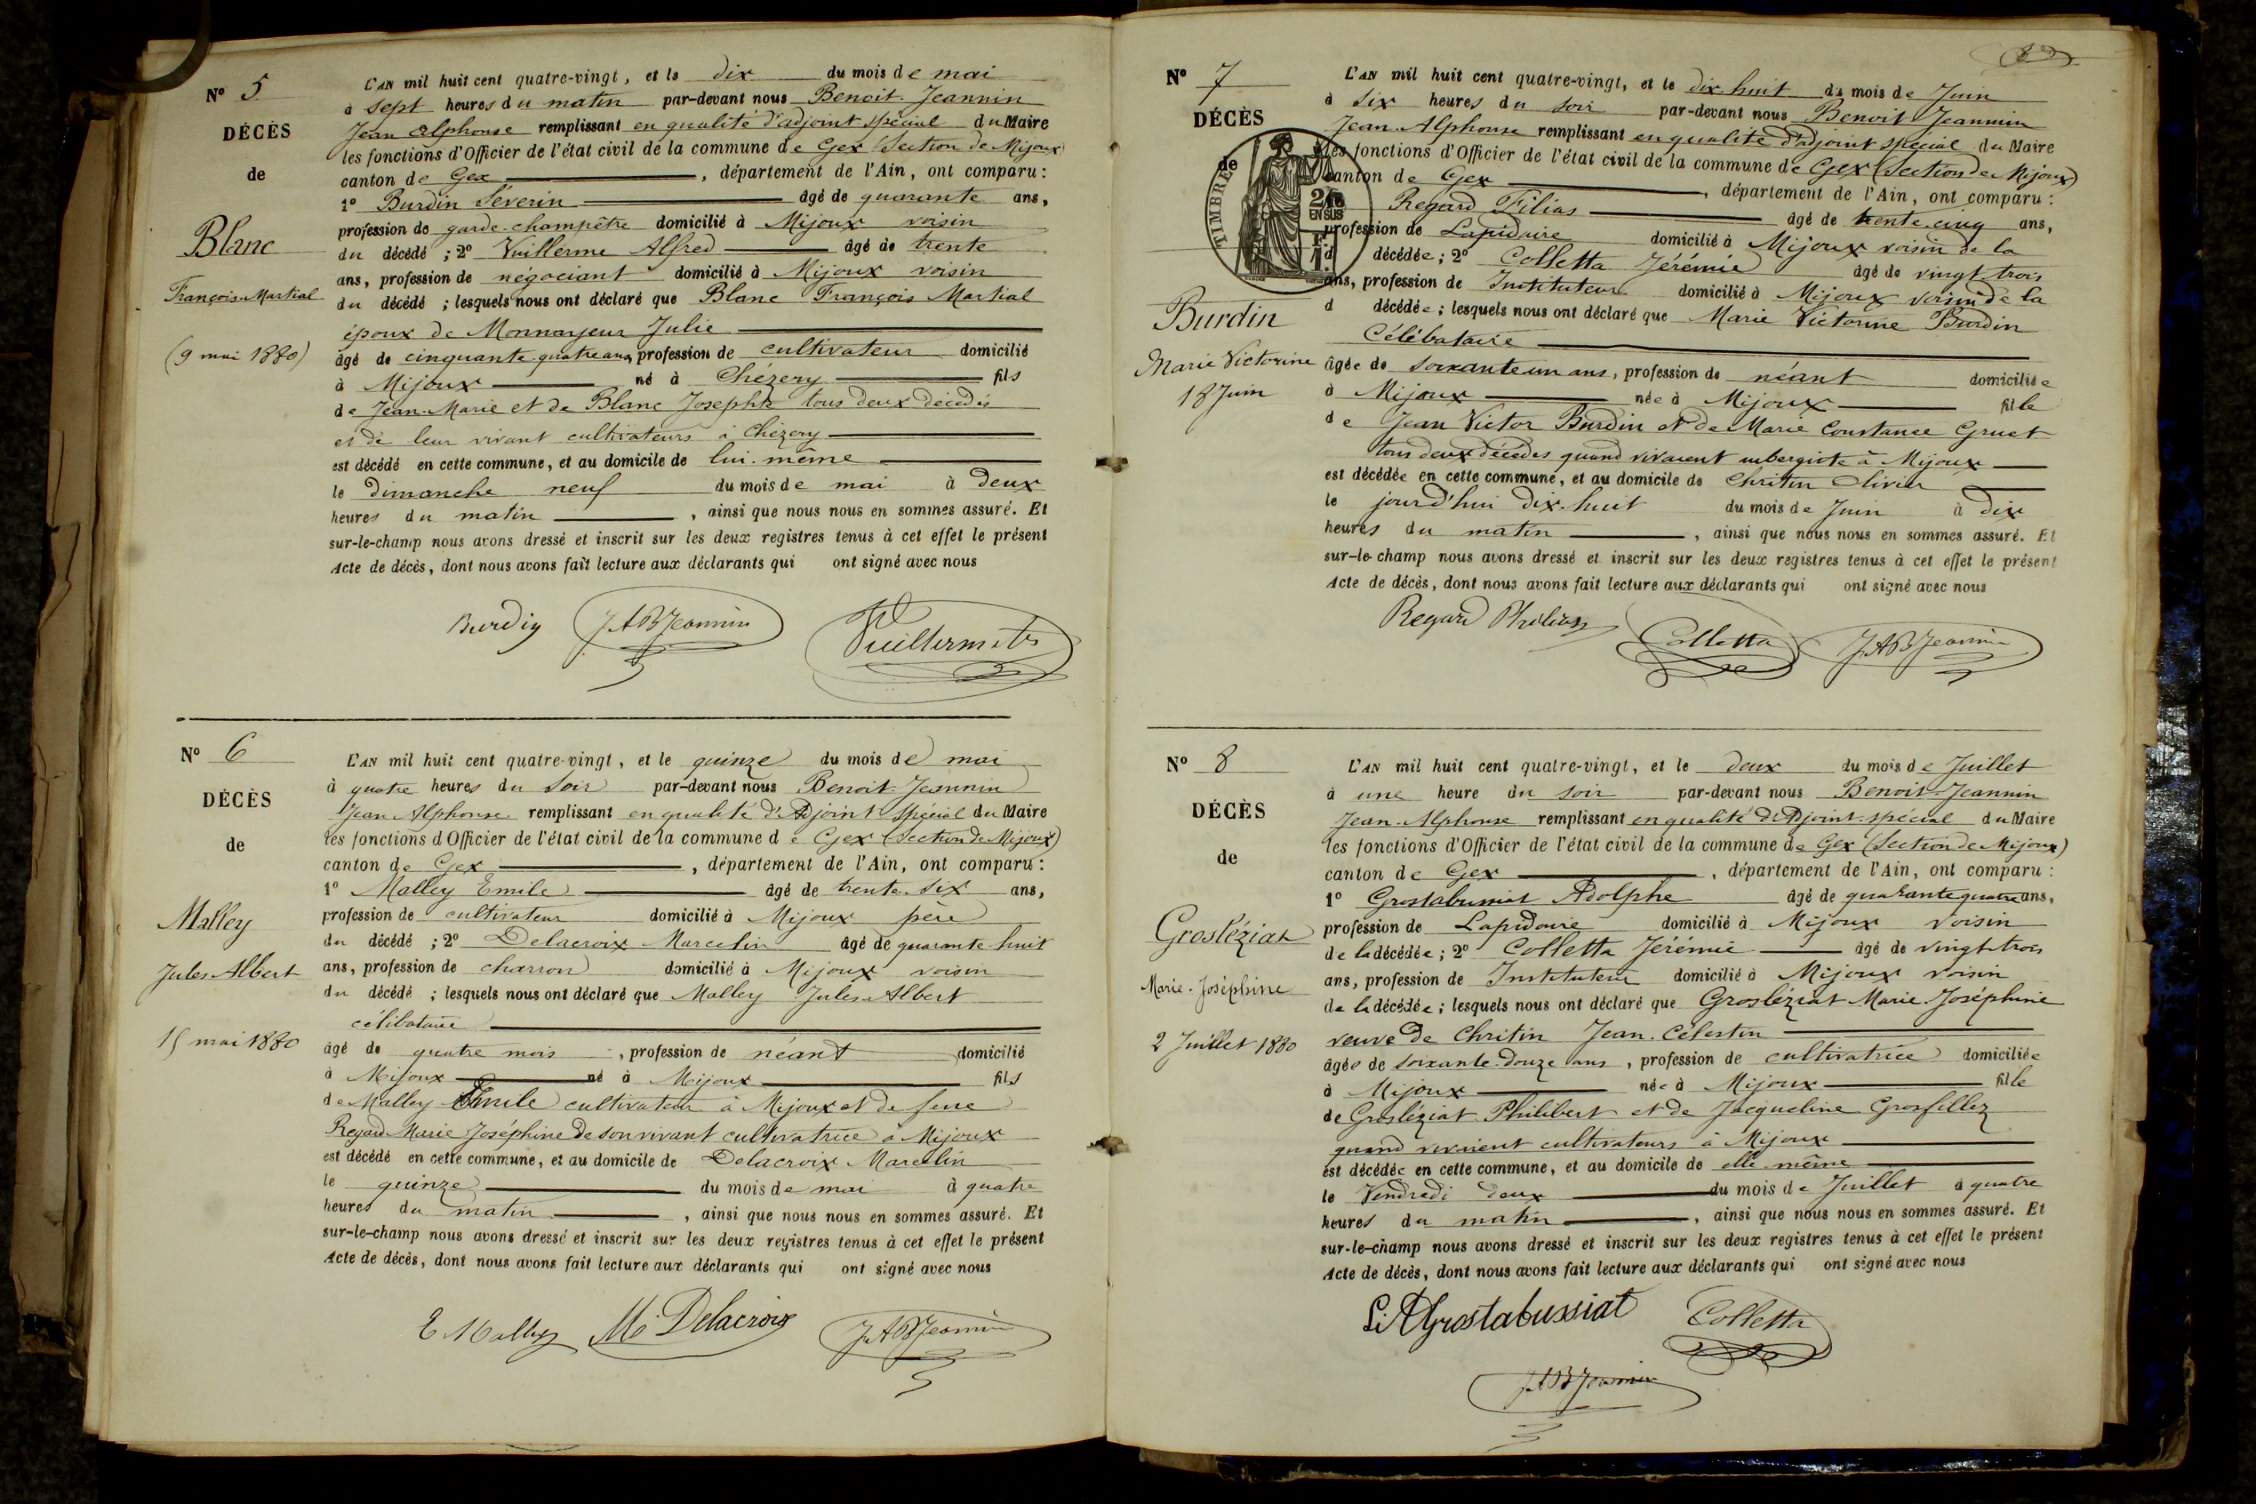 Nº 5
DÉCÈS
de
Blanc
François Martial
(9 mai 1880)
L'AN mil huit cent quatre-vingt, et le dix du mois de mai
à sept heures du matin par-devant nous Benoit-Jeannin
Jean Alphonse remplissant en qualité d'adjoint spécial du Maire
les fonctions d'Officier de l'état civil de la commune de Gex (Section de Mijoux)
canton de Gex, département de l'Ain, ont comparu :
1º Burdin Séverin âgé de quarante ans,
profession de garde-champêtre domicilié à Mijoux voisin
du décédé ; 2º Vuillerme Alfred âgé de trente
ans, profession de négociant domicilié à Mijoux voisin
du décédé ; lesquels nous ont déclaré que Blanc François Martial
époux de Julie
âgé de cinquante-quatre ans, profession de cultivateur domicilié
à Mijoux né à Chézery fils
de Jean-Marie et de Blanc Josephte tous deux décédés
et de leur vivant cultivateurs à Chézery
est décédé en cette commune, et au domicile de lui-même
le dimanche neuf du mois de mai à deux
heures du matin, ainsi que nous nous en sommes assuré. Et
sur-le-champ nous avons dressé et inscrit sur les deux registres tenus à cet effet le présent
Acte de décès, dont nous avons fait lecture aux déclarants qui ont signé avec nous
Burdin J A B Jeannin
Nº 6
DÉCÈS
de
Malley
Jules Albert
15 mai 1880
L'AN mil huit cent quatre-vingt, et le quinze du mois de mai
à quatre heures du soir par-devant nous Benoit-Jeannin
Jean Alphonse remplissant en qualité d'Adjoint spécial du Maire
les fonctions d'Officier de l'état civil de la commune de Gex (Section de Mijoux)
canton de Gex, département de l'Ain, ont comparu :
1º Malley Emile âgé de trente-six ans,
profession de cultivateur domicilié à Mijoux père
du décédé ; 2º Delacroix Marcelin âgé de quarante-huit
ans, profession de charron domicilié à Mijoux voisin
du décédé ; lesquels nous ont déclaré que Malley Jules Albert
célibataire
âgé de quatre mois, profession de néant domicilié
à Mijoux né à Mijoux fils
de Malley Emile cultivateur à Mijoux et de feue
Regard Marie Joséphine de son vivant cultivatrice à Mijoux
est décédé en cette commune, et au domicile de Delacroix Marcelin
le quinze du mois de mai à quatre
heures du matin, ainsi que nous nous en sommes assuré. Et
sur-le-champ nous avons dressé et inscrit sur les deux registres tenus à cet effet le présent
Acte de décès, dont nous avons fait lecture aux déclarants qui ont signé avec nous
E Malley M Delacroix J A B Jeannin
Nº 7
DÉCÈS
de
TIMBRE
EN SUS
Burdin
Marie Victorine
18 Juin
L'AN mil huit cent quatre-vingt, et le dix-huit du mois de Juin
à six heures du soir par-devant nous Benoit-Jeannin
Jean-Alphonse remplissant en qualité d'adjoint spécial du Maire
les fonctions d'Officier de l'état civil de la commune de Gex (Section de Mijoux)
canton de Gex, département de l'Ain, ont comparu :
Regard Filias âgé de trente-cinq ans,
profession de Lapidaire domicilié à Mijoux voisin de la
décédée ; 2º Colletta Jérémie âgé de vingt-trois
ans, profession de Instituteur domicilié à Mijoux voisin de la
d décédée ; lesquels nous ont déclaré que Marie Victorine Burdin
Célébataire
âgée de soixante un ans, profession de néant domiciliée
à Mijoux née à Mijoux fille
de Jean Victor Burdin et de Marie Constance Gruet
tous deux décédés quand vivaient aubergiste à Mijoux
est décédée en cette commune, et au domicile de Christin Olivier
le jourd'hui dix-huit du mois de Juin à dix
heures du matin, ainsi que nous nous en sommes assuré. Et
sur-le-champ nous avons dressé et inscrit sur les deux registres tenus à cet effet le présent
Acte de décès, dont nous avons fait lecture aux déclarants qui ont signé avec nous
Regard Philias Colletta J A B Jeannin
Nº 8
DÉCÈS
de
Grosléziat
Marie-Joséphine
2 Juillet 1880
L'AN mil huit cent quatre-vingt, et le deux du mois de Juillet
à une heure du soir par-devant nous Benoit-Jeannin
Jean-Alphonse remplissant en qualité d'Adjoint-spécial du Maire
les fonctions d'Officier de l'état civil de la commune de Gex (Section de Mijoux)
canton de Gex, département de l'Ain, ont comparu :
1º Grostabussiat Adolphe âgé de quarante quatre ans,
profession de Lapidaire domicilié à Mijoux voisin
de la décédée ; 2º Colletta Jérémie âgé de vingt-trois
ans, profession de Instituteur domicilié à Mijoux voisin
de la décédée ; lesquels nous ont déclaré que Grosléziat Marie-Joséphine
veuve de Chritin Jean-Célestin
âgée de soixante-douze ans, profession de cultivatrice domiciliée
à Mijoux née à Mijoux fille
de Grosléziat Philibert et de Jacqueline Grosfillez
quand vivaient cultivateurs à Mijoux
est décédée en cette commune, et au domicile de elle-même
le Vendredi deux du mois de Juillet à quatre
heures du matin, ainsi que nous nous en sommes assuré. Et
sur-le-champ nous avons dressé et inscrit sur les deux registres tenus à cet effet le présent
Acte de décès, dont nous avons fait lecture aux déclarants qui ont signé avec nous
L. A Grostabussiat Colletta
J A B Jeannin